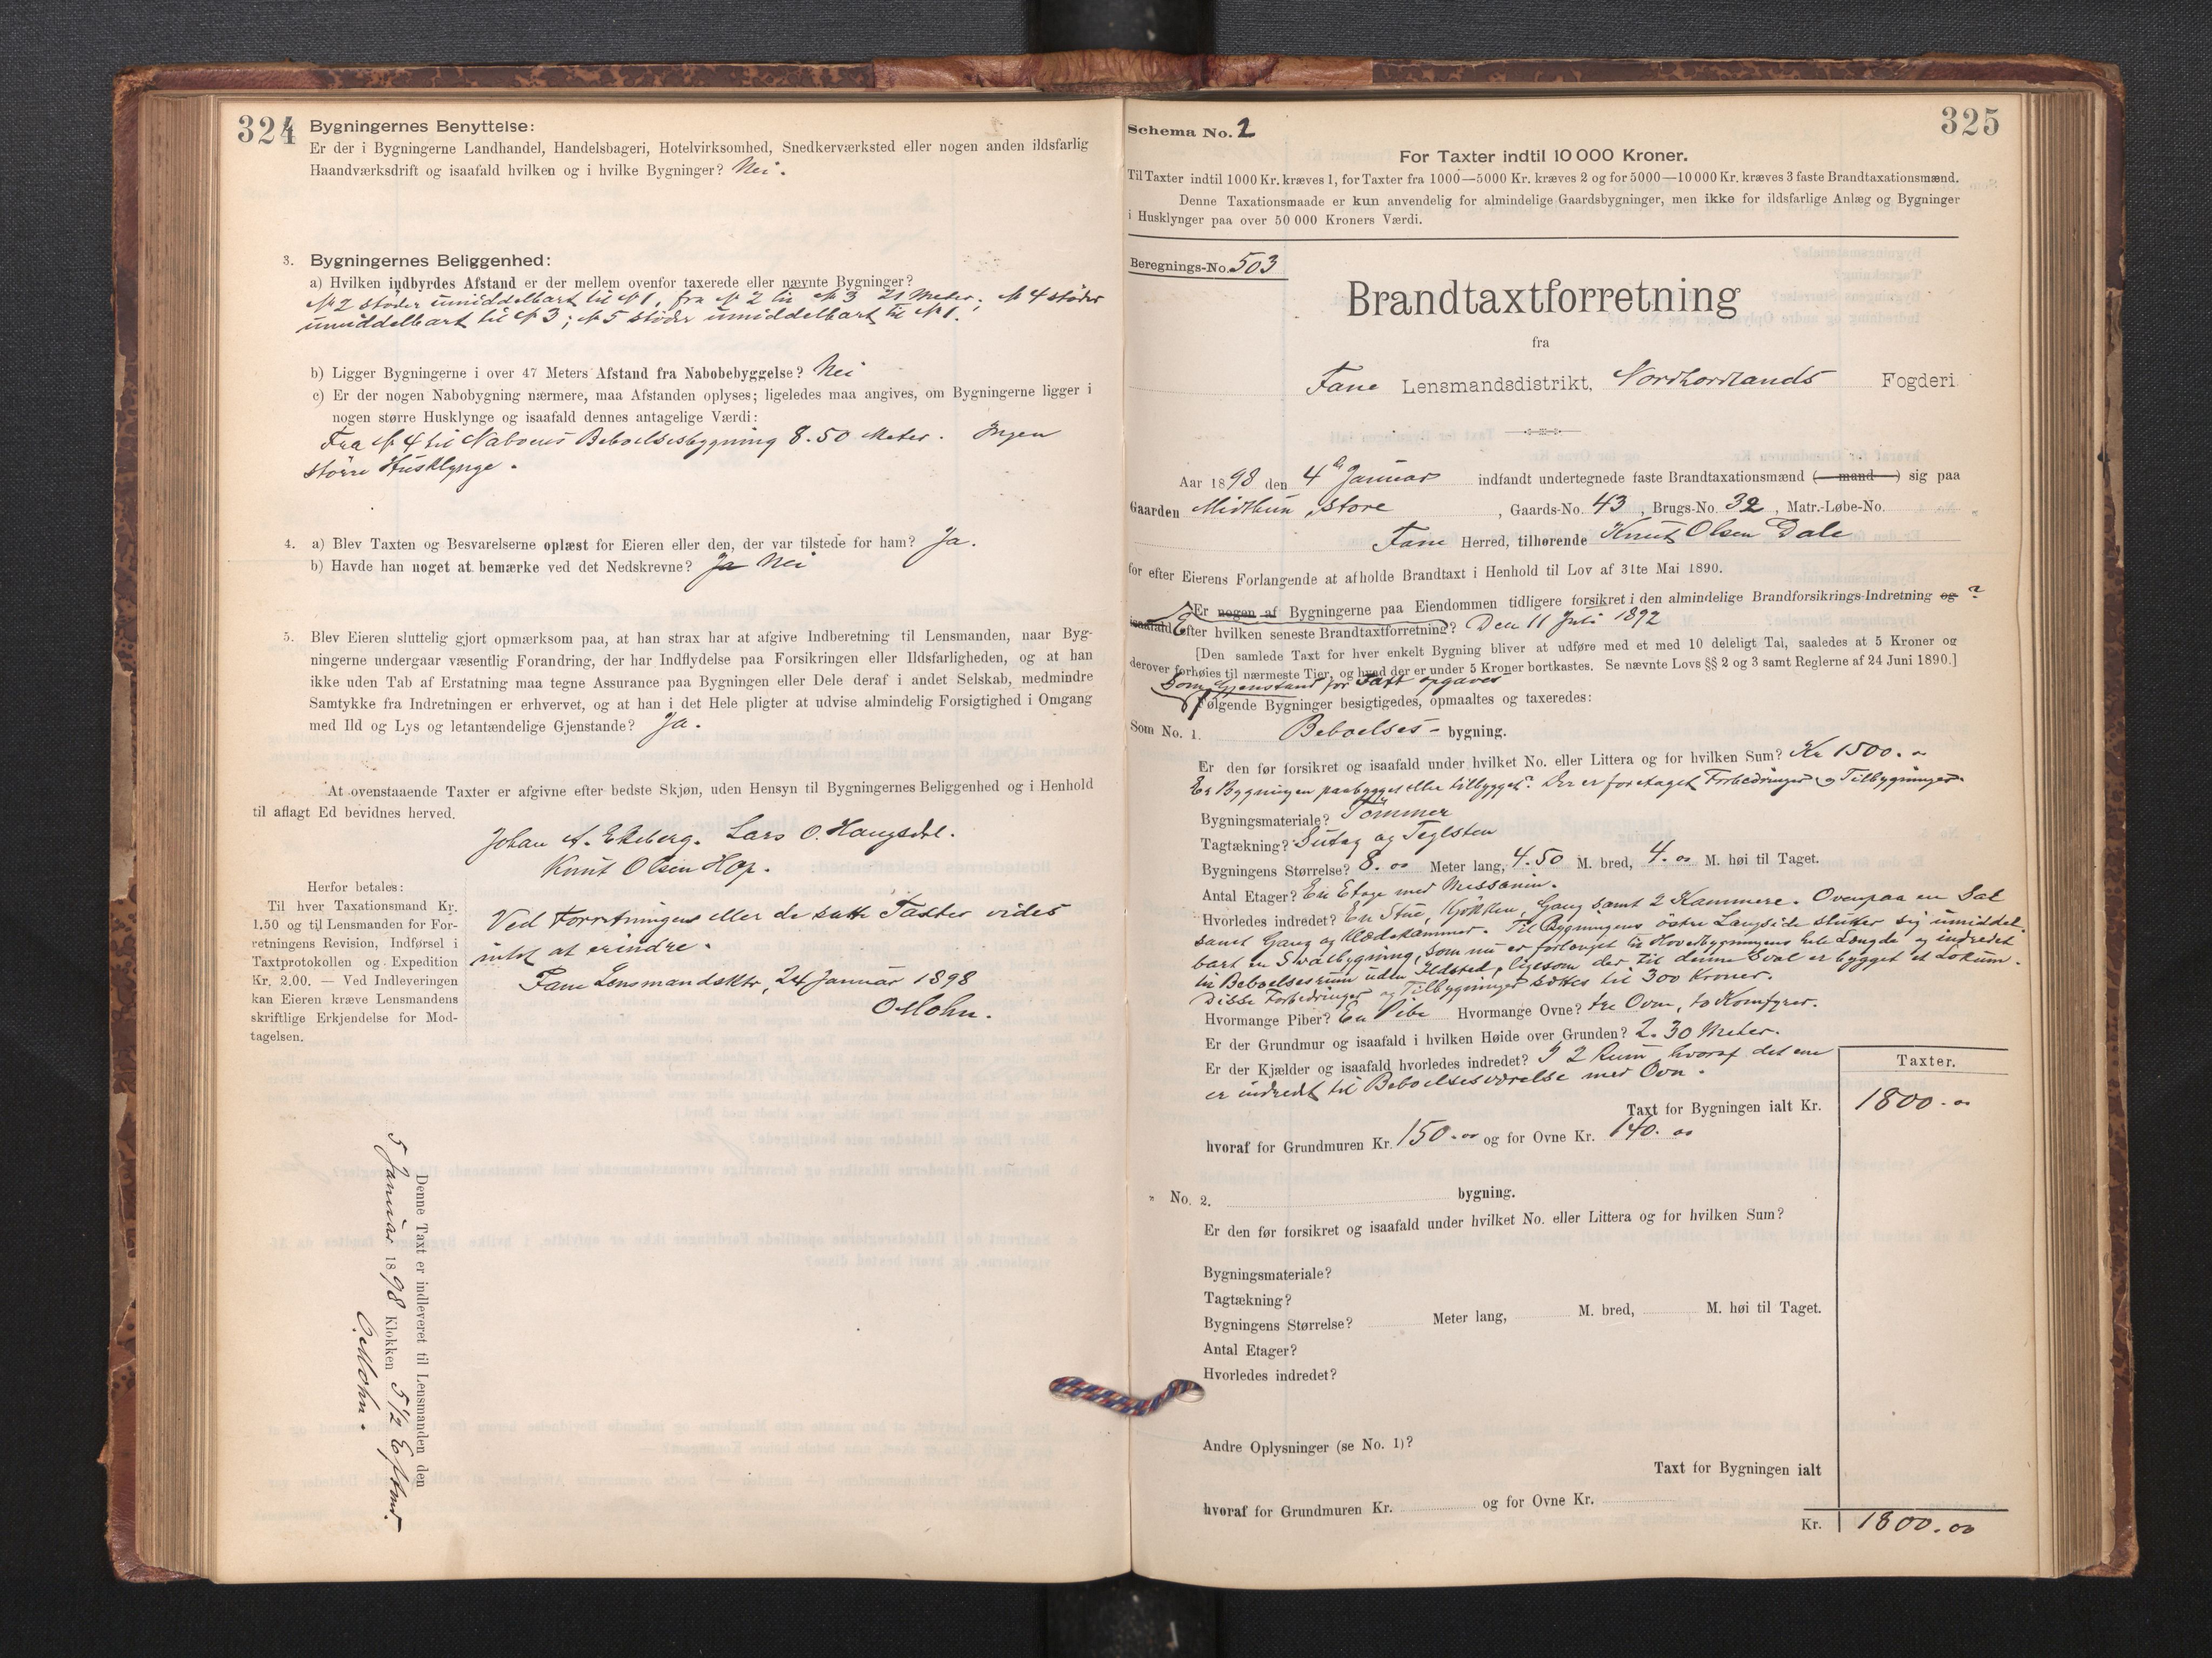 324
Bygningernes Benyttelse:
Er der i Bygningerne Landhandel, Handelsbageri, Hotelvirksomhed, Snedkerværksted eller nogen anden ildsfarlig
Haandværksdrift og isaafald hvilken og i hvilke Bygninger? Nei.
3. Bygningernes Beliggenhed:
a) Hvilken indbyrdes Afstand er der mellem ovenfor taxerede eller nævnte Bygninger?
N 2 støder umiddelbart til N 1, fra N 2 til N 3 21 Meter; N 4 støder
umiddelbart til N 3; N 5 støder umiddelbart til N 1.
b) Ligger Bygningerne i over 47 Meters Afstand fra Nabobebyggelse? Nei
c) Er der nogen Nabobygning nærmere, maa Afstanden oplyses; ligeledes maa angives, om Bygningerne ligger i
nogen større Husklynge og isaafald dennes antagelige Værdi:
Fra N 4 til Naboens Beboelsesbygning 8.50 Meter. Ingen
større Husklynge.
4. a) Blev Taxten og Besvarelserne oplæst for Eieren eller den, der var tilstede for ham? Ja.
b) Havde han noget at bemærke ved det Nedskrevne? Ja Nei
5. Blev Eieren sluttelig gjort opmærksom paa, at han strax har at afgive Indberetning til Lensmanden, naar Byg-
ningerne undergaar væsentlig Forandring, der har Indflydelse paa Forsikringen eller Ildsfarligheden, og at han
ikke uden Tab af Erstatning maa tegne Assurance paa Bygningen eller Dele deraf i andet Selskab, medmindre
Samtykke fra Indretningen er erhvervet, og at han i det Hele pligter at udvise almindelig Forsigtighed i Omgang
med Ild og Lys og letantændelige Gjenstande? Ja.
At ovenstaaende Taxter er afgivne efter bedste Skjøn, uden Hensyn til Bygningernes Beliggenhed og i Henhold
til aflagt Ed bevidnes herved.
Johan A. Ekeberg. Lars O. Haugsdal.
Knut Olsen Hop.
Herfor betales:
Til hver Taxationsmand Kr.
1.50 og til Lensmanden for For-
retningens Revision, Indførsel i
Taxtprotokollen og Expedition
Kr. 2.00. — Ved Indleveringen
kan Eieren kræve Lensmandens
skriftlige Erkjendelse for Mod-
tagelsen.
Ved Forretningen eller de satte Taxter vides
intet at erindre.
Fane Lensmandsktr, 24 Januar 1898
O Mohn.
Denne Taxt er indleveret til Lensmanden den
5 Januar 1898 Klokken 5 1/2 Eftmd.
O. Mohn.
325
Schema No. 2
For Taxter indtil 10 000 Kroner.
Til Taxter indtil 1000 Kr. kræves 1, for Taxter fra 1000—5000 Kr. kræves 2 og for 5000—10 000 Kr. kræves 3 faste Brandtaxationsmænd.
Denne Taxationsmaade er kun anvendelig for almindelige Gaardsbygninger, men ikke for ildsfarlige Anlæg og Bygninger
i Husklynger paa over 50 000 Kroners Værdi.
Beregnings-No. 503
Brandtaxtforretning
fra
Fane Lensmandsdistrikt, Nordhordlands Fogderi.
Aar 1898 den 4de Januar indfandt undertegnede faste Brandtaxationsmænd (—mand—) sig paa
Gaarden Midthun, store, Gaards-No. 43, Brugs-No. 32, Matr.-Løbe-No.
Fane Herred, tilhørende Knut Olsen Dale
for efter Eierens Forlangende at afholde Brandtaxt i Henhold til Lov af 31te Mai 1890.
Er nogen af Bygningerne paa Eiendommen tidligere forsikret i den almindelige Brandforsikrings-Indretning og ?
isaafald Efter hvilken seneste Brandtaxtforretning? Den 11 Juli 1892
[Den samlede Taxt for hver enkelt Bygning bliver at udføre med et med 10 deleligt Tal, saaledes at 5 Kroner og
derover forhøies til nærmeste Tier, og hvad der er under 5 Kroner bortkastes. Se nævnte Lovs §§ 2 og 3 samt Reglerne af 24 Juni 1890.]
Som Gjenstand for Taxt opgaves
Følgende Bygninger besigtigedes, opmaaltes og taxeredes:
Som No. 1. Beboelses- bygning.
Er den før forsikret og isaafald under hvilket No. eller Littera og for hvilken Sum? Kr 1500.00
Er Bygningen paabygget eller tilbygget? Der er foretaget Forbedringer og Tilbygninger.
Bygningsmateriale? Tømmer
Tagtækning? Sutag og Teglsten
Bygningens Størrelse? 8.00 Meter lang, 4.50 M. bred, 4.00 M. høi til Taget.
Antal Etager? En Etage med Messanin.
Hvorledes indredet? En Stue, Kjøkken, Gang samt 2 Kammere. Ovenpaa en Sal
samt Gang og Klædekammer. Til Bygningens østre Langside slutter sig umiddel-
bart en Svalbygning, som nu er forlænget til Hovedbygningens hele Længde og indredet
til Beboelsesrum uden Ildsted, ligesom der til denne Sval er bygget et Lokum.
Disse Forbedringer og Tilbygninger sættes til 300 Kroner.
Hvormange Piber? En Pibe Hvormange Ovne? tre Ovne, to Komfyrer.
Er der Grundmur og isaafald i hvilken Høide over Grunden? 2.30 Meter.
Er der Kjælder og isaafald hvorledes indredet? I 2 Rum, hvoraf det ene
er indredet til Beboelsesværelse med Ovn.
Taxter.
Taxt for Bygningen ialt Kr. 1800.00
hvoraf for Grundmuren Kr. 150.00 og for Ovne Kr. 140.00
" No. 2. bygning.
Er den før forsikret og isaafald under hvilket No. eller Littera og for hvilken Sum?
Bygningsmateriale?
Tagtækning?
Bygningens Størrelse? Meter lang, M. bred, M. høi til Taget.
Antal Etager?
Hvorledes indredet?
Andre Oplysninger (se No. 1)?
Taxt for Bygningen ialt
hvoraf for Grundmuren Kr. og for Ovne Kr.
Kr. 1800.00